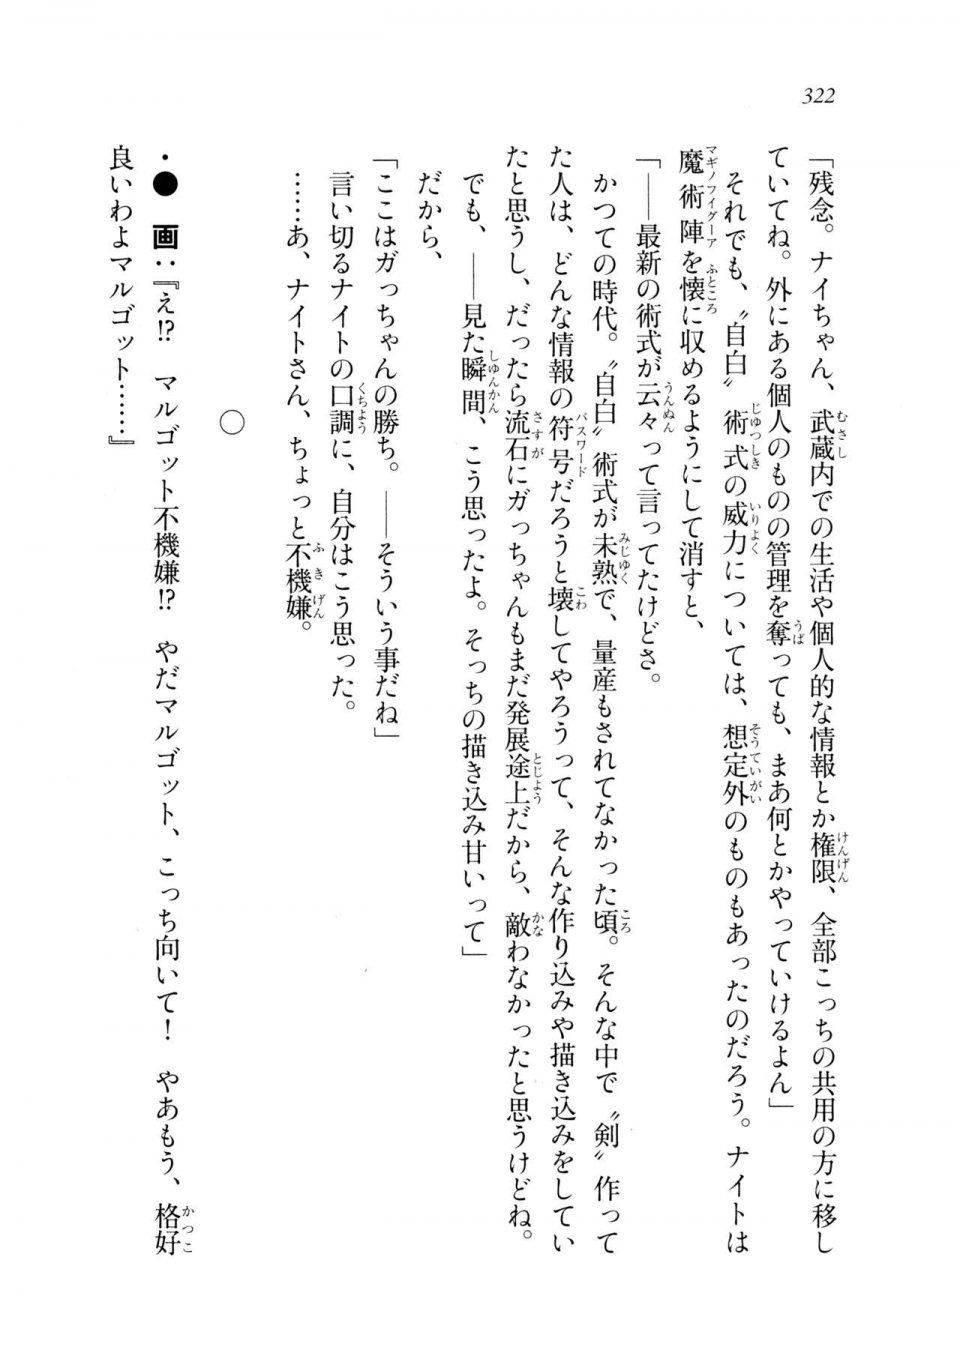 322
「残念。ナイちゃん、武蔵内での生活や個人的な情報とか権限、全部こっちの共用の方に移し
ていてね。外にある個人のものの管理を奪っても、まあ何とかやっていけるよん」
それでも、〝自白〟術式の威力については、想定外のものもあったのだろう。ナイトは
魔術陣を懐に収めるようにして消すと、
「――最新の術式が云々って言ってたけどさ。
かつての時代。〝自白〟術式が未熟で、量産もされてなかった頃。そんな中で〝剣〟作って
た人は、どんな情報の符号だろうと壊してやろうって、そんな作り込みや描き込みをしてい
たと思うし、だったら流石にガっちゃんもまだ発展途上だから、敵わなかったと思うけどね。
でも、――見た瞬間、こう思ったよ。そっちの描き込み甘いって」
だから、
「ここはガっちゃんの勝ち。――そういう事だね」
言い切るナイトの口調に、自分はこう思った。
……あ、ナイトさん、ちょっと不機嫌。
○
・● 画：『え!?　マルゴット不機嫌!?　やだマルゴット、こっち向いて！　やあもう、格好
良いわよマルゴット……』